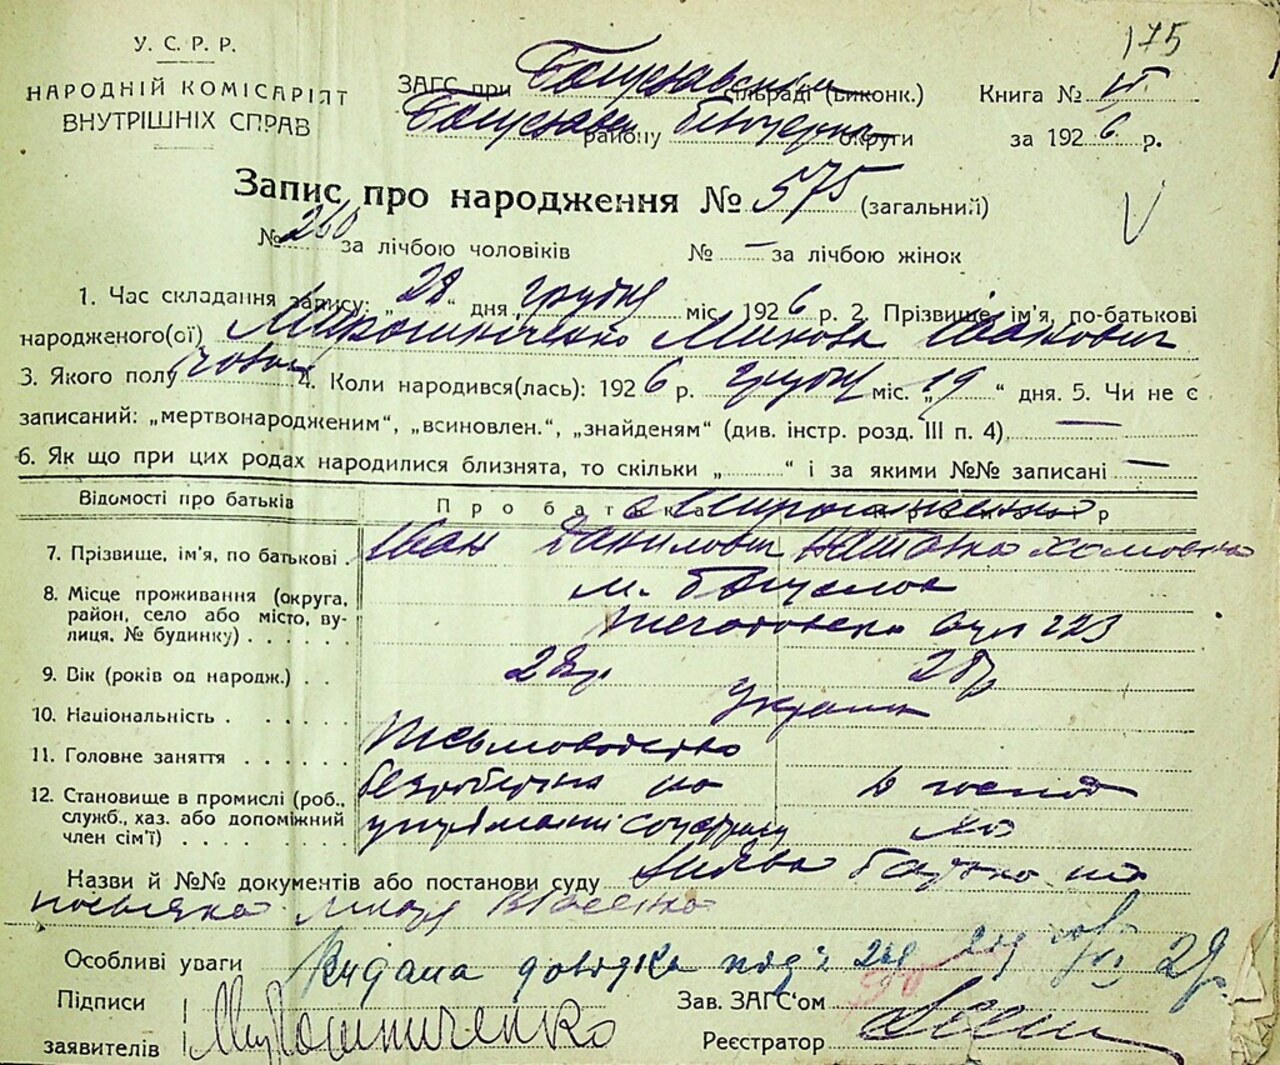 175
У. С. Р. Р.
НАРОДНІЙ КОМІСАРІЯТ
ВНУТРІШНІХ СПРАВ
ЗАГС при Богуславськім сільраді (виконк.)
району округи
Книга № VI
за 1926 р.
Запис про народження № 575 (загальний)
№ 260 за лічбою чоловіків № — за лічбою жінок
1. Час складання запису: „28“ дня грудня міс. 1926 р. 2. Прізвище, ім'я, по-батькові
народженого(ої) Мирошниченко Микола Іванович
3. Якого полу чолов 4. Коли народився(лась): 1926 р. грудня міс. „19“ дня. 5. Чи не є
записаний: „мертвонародженим“, „всиновлен.“, „знайденям“ (див. інстр. розд. III п. 4) —
6. Як що при цих родах народилися близнята, то скільки „ “ і за якими №№ записані —
Відомості про батьків Про батька Мирошниченко
7. Прізвище, ім'я, по батькові Іван Данилович Наталка Хомовна
8. Місце проживання (округа, м. Богуслав
район, село або місто, ву-
лиця, № будинку) вул 223
9. Вік (років од народж.) 28р 28р
10. Національність Україн
11. Головне заняття Письмоводство
12. Становище в промислі (роб., безробітний на в господ
служб., хаз. або допоміжний
член сім'ї) утриманні соцстраху
Назви й №№ документів або постанови суду заява батька
Особливі уваги Видана довідка під №
Підписи
заявителів Мирошниченко
Зав. ЗАГС'ом
Реєстратор